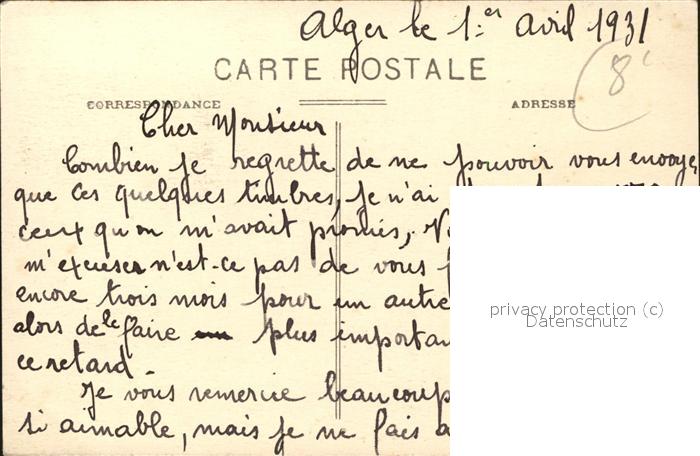 Alger le 1er Avril 1931
8
CARTE POSTALE
CORRESPONDANCE
ADRESSE
Cher Monsieur
Combien je regrette de ne pouvoir vous envoyer
que ces quelques timbres, je n'ai
ceux qu'on m'avait promis,
m'excuser n'est-ce pas de vous
encore trois mois pour un autre
alors de le faire plus importan
ce retard.
Je vous remercie beaucoup
si aimable, mais je ne fais
privacy protection (c)
Datenschutz